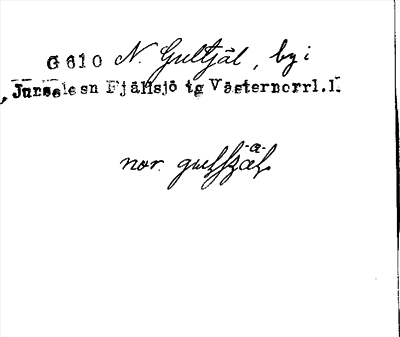 G 610 N. Gultjäl, by i
Junsele sn Fjällsjö tg Västernorrl.l.
-a-
nor. gulsjäl